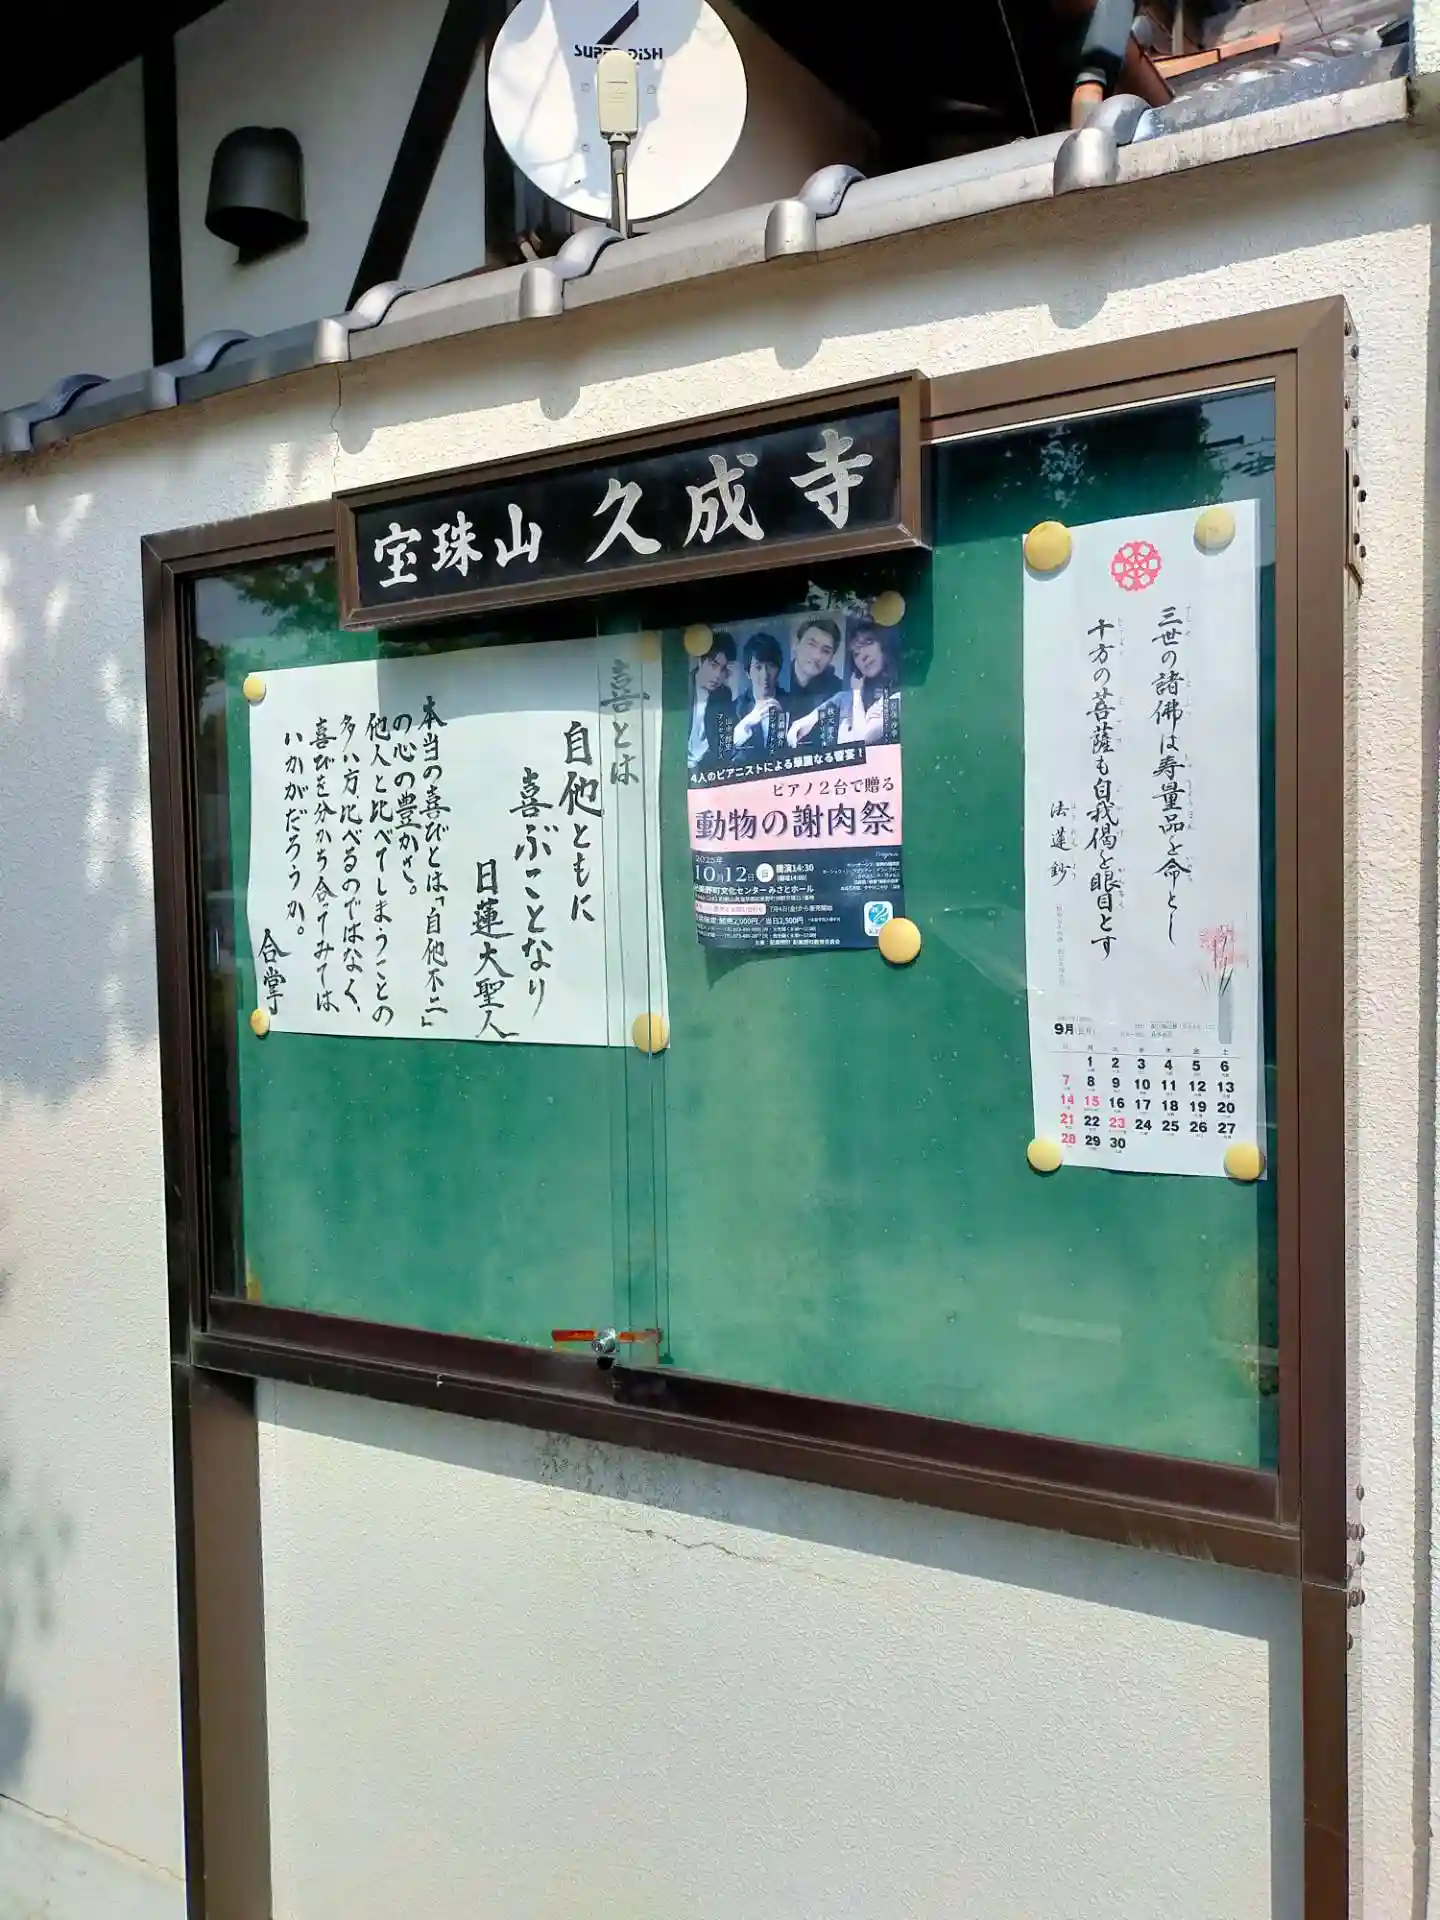 SUPER DISH
宝珠山 久成寺
喜とは
自他ともに
喜ぶことなり
日蓮大聖人
本当の喜びとは「自他不二」
の心の豊かさ。
他人と比べてしまうことの
多い方、比べるのではなく、
喜びを分かち合てみては
いかがだろうか。
合掌
4人のピアニストによる華麗なる饗宴!
ピアノ2台で贈る
動物の謝肉祭
2025年
10月12日
日
開演14:30
文化センター みさとホール
三世の諸佛は寿量品を命とし
十方の菩薩も自我偈を眼目とす
法蓮鈔
9月
日 月 火 水 木 金 土
1 2 3 4 5 6
7 8 9 10 11 12 13
14 15 16 17 18 19 20
21 22 23 24 25 26 27
28 29 30